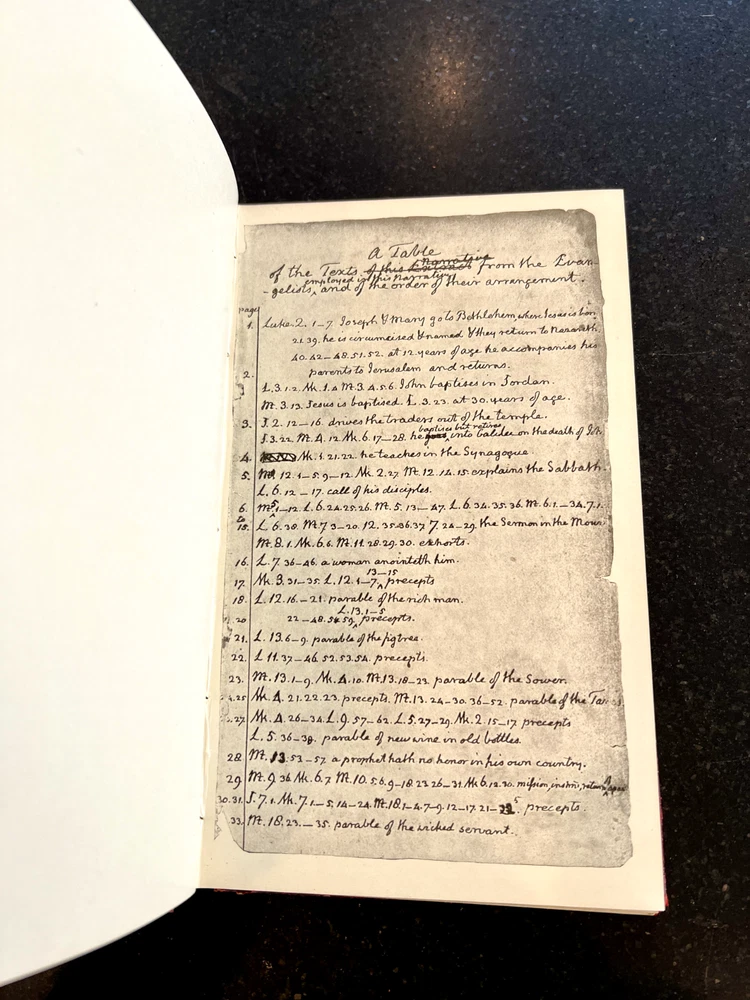 A Table
of the Texts of this Narrative from the Evan-
employed in this Narrative
-gelists, and of the order of their arrangement.
page
1. Luke. 2. 1-7. Joseph & Mary go to Bethlehem, where Jesus is born
21.39. he is circumcised & named & they return to Nazareth.
40.42-48.51.52. at 12 years of age he accompanies his
2. parents to Jerusalem and returns.
L.3.1.2. Mk.1.4 Mt.3.4.5.6. John baptises in Jordan.
Mt.3.13. Jesus is baptised. L.3.23. at 30. years of age.
3. J.2.12-16. drives the traders out of the temple.
baptises but retires
J.3.22. Mt.4.12 Mk.6.17-28. he into Galilee on the death of
4. Mk.1.21.22. he teaches in the Synagogue
5. Mt.12.1-5.9-12 Mk.2.27 Mt.12.14.15. explains the Sabbath.
L.6.12-17. call of his disciples.
6. Mt.5.1-12. L.6.24.25.26. Mt.5.13-47. L.6.34.35.36. Mt.6.1.-34.7.1.
to
15. L.6.38. Mt.7.3-20. 12.35.36.37 7.24-29. the Sermon in the Moun
Mt.8.1. Mk.6.6. Mt.11.28.29.30. exhorts.
16. L.7.36-46. a woman anointeth him.
13-15
17. Mk.3.31-35. L.12.1-7. precepts
18. L.12.16.-21. parable of the rich man.
L.13.1-5
20 22-48.54.59. precepts.
21. L.13.6-9. parable of the figtree.
22. L.11.37-46.52.53.54. precepts.
23. Mt.13.1-9. Mk.4.10. Mt.13.18-23. parable of the Sower.
4.25 Mk.4.21.22.23. precepts. Mt.13.24-30.36-52. parable of the Tares
.27. Mk.4.26-34. L.9.57-62. L.5.27-29. Mk.2.15-17 precepts
L.5.36-38. parable of new wine in old bottles.
28. Mt.13.53-57. a prophet hath no honor in his own country.
29. Mt.9.36 Mk.6.7 Mt.10.5.6.9-18.23.26-31 Mk.6.12.30. mission
30.31. J.7.1. Mk.7.1-5.14-24. Mt.18.1-4.7-9.12-17.21- precepts.
33. Mt.18.23.-35. parable of the wicked servant.